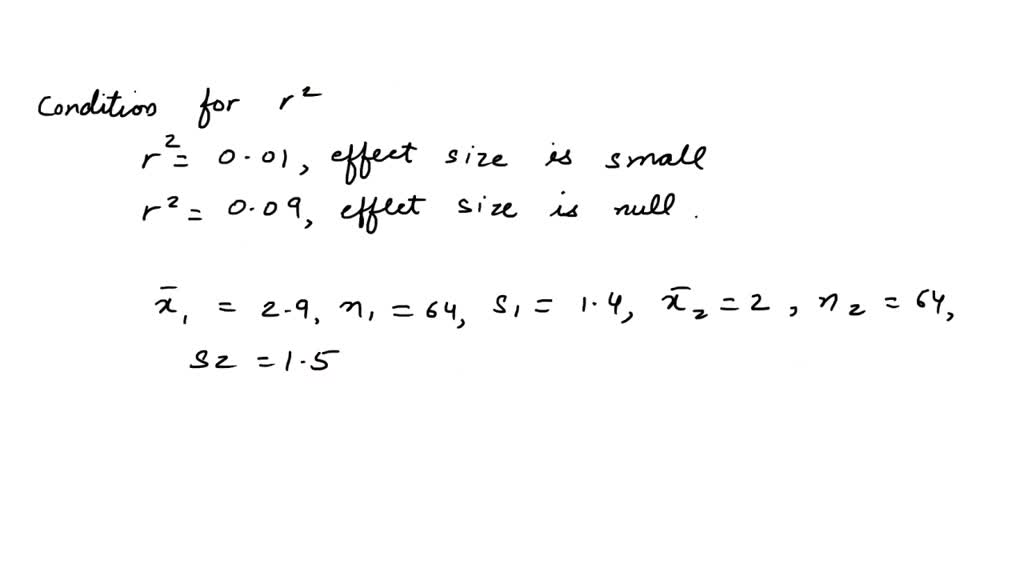 Condition for r²
r² = 0.01, effect size is small
r² = 0.09, effect size is null.
x̄₁ = 2.9, n₁ = 64, S₁ = 1.4, x̄₂ = 2, n₂ = 64,
S2 = 1.5